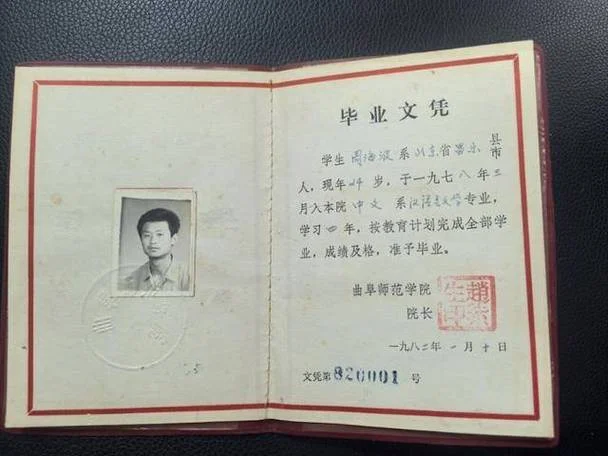 毕业文凭
学生 周海波 系 山东 省 昌乐 县市
人，现年 24 岁，于一九七八年三
月入本院 中文 系 汉语言文学 专业，
学习 四 年，按教育计划完成全部学
业，成绩及格，准予毕业。
曲阜师范学院
院长
一九八二年 一 月 十 日
文凭第 820001 号